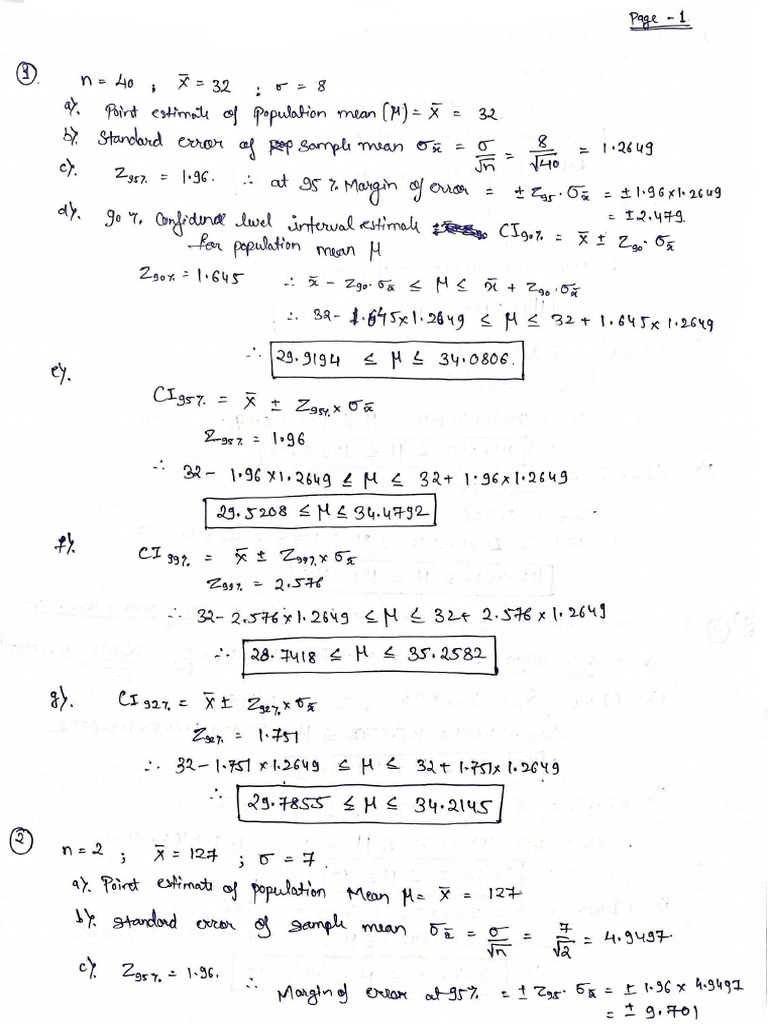 Page - 1
①. n = 40 ; x̄ = 32 ; σ = 8
a). Point estimate of population mean (μ) = x̄ = 32.
b). Standard error of sample mean σx̄ = σ/√n = 8/√40 = 1.2649
c). Z95% = 1.96. ∴ at 95% Margin of error = ± Z95 · σx̄ = ± 1.96 × 1.2649
= ± 2.479.
d). 90 % Confidence level interval estimate CI90% = x̄ ± Z90 · σx̄
for population mean μ
Z90% = 1.645 ∴ x̄ - Z90 · σx̄ ≤ μ ≤ x̄ + Z90 · σx̄
∴ 32 - 1.645 × 1.2649 ≤ μ ≤ 32 + 1.645 × 1.2649
∴ 29.9194 ≤ μ ≤ 34.0806.
e).
CI95% = x̄ ± Z95% × σx̄
Z95% = 1.96
∴ 32 - 1.96 × 1.2649 ≤ μ ≤ 32 + 1.96 × 1.2649
29.5208 ≤ μ ≤ 34.4792
f). CI99% = x̄ ± Z99% × σx̄
Z99% = 2.576
∴ 32 - 2.576 × 1.2649 ≤ μ ≤ 32 + 2.576 × 1.2649
∴ 28.7418 ≤ μ ≤ 35.2582
g). CI92% = x̄ ± Z92% × σx̄
Z92% = 1.751
∴ 32 - 1.751 × 1.2649 ≤ μ ≤ 32 + 1.751 × 1.2649
∴ 29.7855 ≤ μ ≤ 34.2145
② n = 2 ; x̄ = 127 ; σ = 7.
a). Point estimate of population Mean μ = x̄ = 127
b). Standard error of sample mean σx̄ = σ/√n = 7/√2 = 4.9497.
c). Z95% = 1.96. ∴ Margin of error at 95% = ± Z95 · σx̄ = ± 1.96 × 4.9497
= ± 9.701